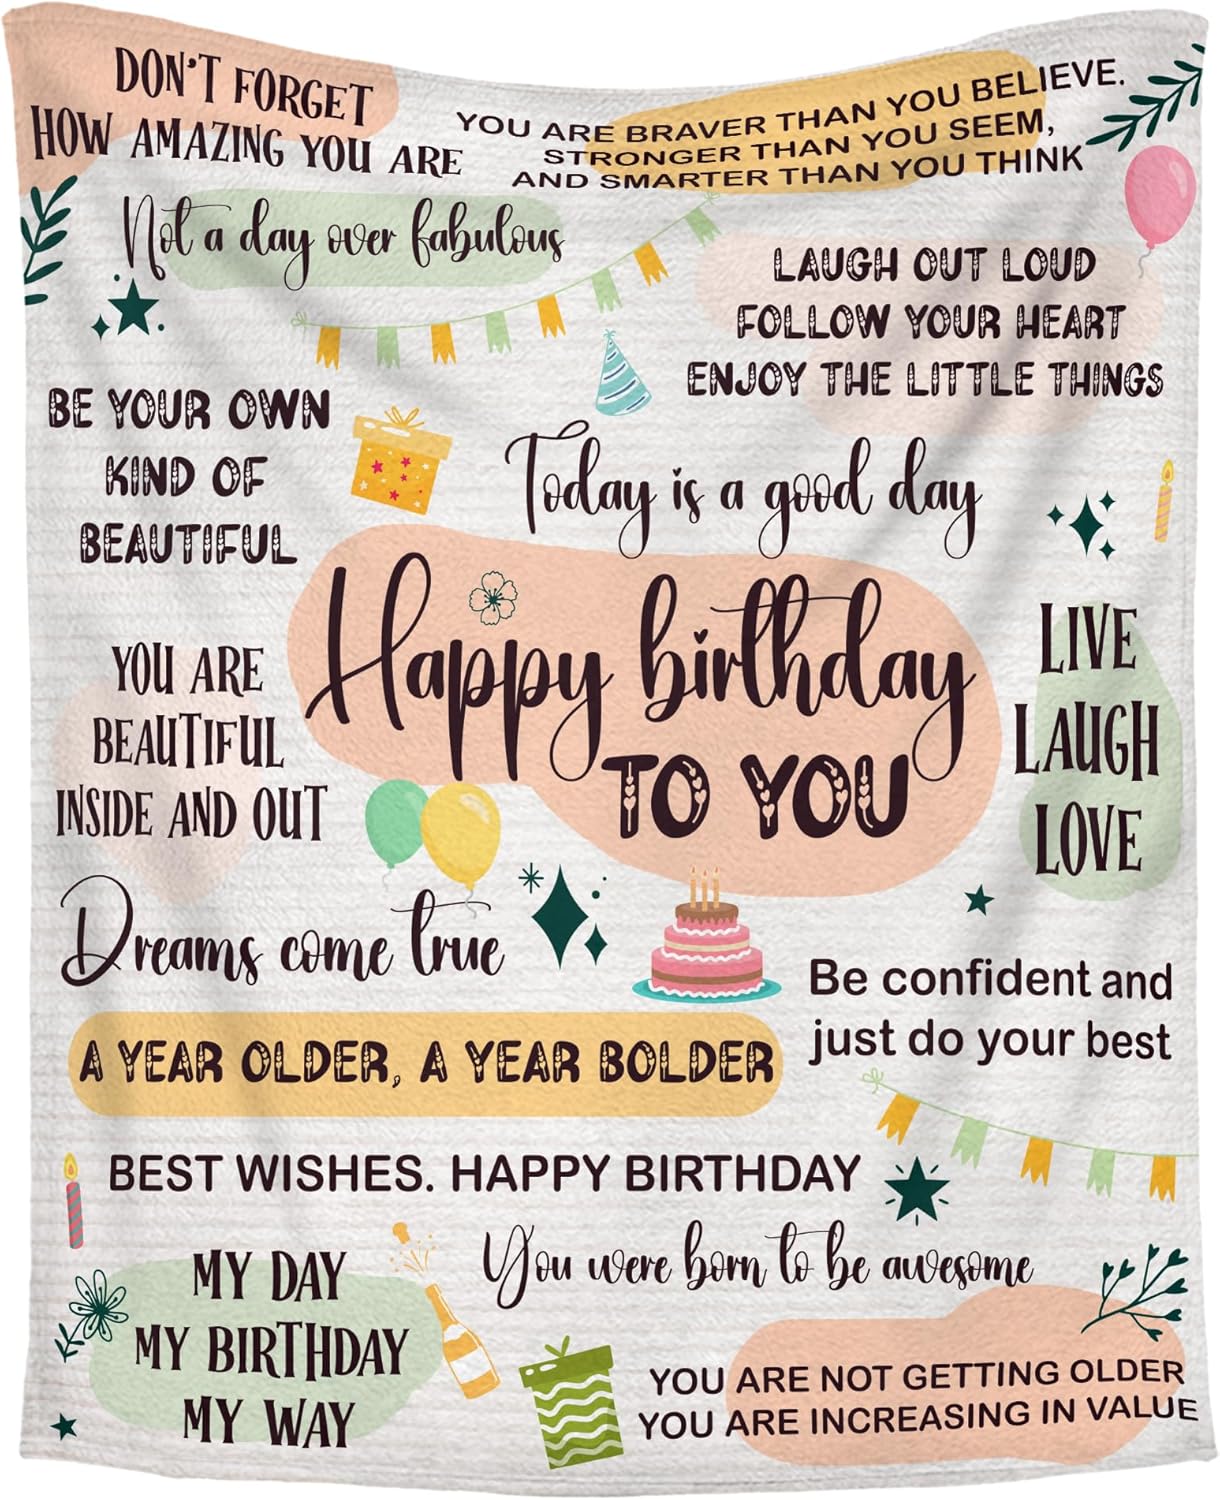 DON'T FORGET
HOW AMAZING YOU ARE
YOU ARE BRAVER THAN YOU BELIEVE.
STRONGER THAN YOU SEEM,
AND SMARTER THAN YOU THINK
Not a day over fabulous
LAUGH OUT LOUD
FOLLOW YOUR HEART
ENJOY THE LITTLE THINGS
BE YOUR OWN
KIND OF
BEAUTIFUL
Today is a good day
Happy birthday
TO YOU
YOU ARE
BEAUTIFUL
INSIDE AND OUT
LIVE
LAUGH
LOVE
Dreams come true
Be confident and
just do your best
A YEAR OLDER, A YEAR BOLDER
BEST WISHES. HAPPY BIRTHDAY
You were born to be awesome
MY DAY
MY BIRTHDAY
MY WAY
YOU ARE NOT GETTING OLDER
YOU ARE INCREASING IN VALUE